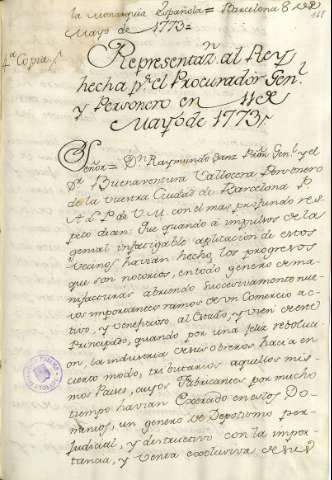 la Monarquia Española = Barcelona 8 de
Mayo de 1773 =
4.ª Copia
Representaz.n al Rey
hecha p.r el Procurador Gen.l
y Personero en 11 de
Mayo de 1773,,
Señor = D.n Raymundo Sanz Pror. Gen.l y el
D.r Buenaventura Vallocera Personero
de la vuestra Ciudad de Barcelona P.
A. L. P. de V. M. con el mas profundo res-
peto dizen: Que quando a impulsos de la
genial infatigable aplicacion de estos
vecinos havian hecho los progresos
que son notorios, en todo genero de ma-
nifacturas abriendo succesivamente nue-
vos importantes ramos de un Comercio ac-
tivo, y veneficioso al Estado, y vien de este
Principado, quando por una feliz revoluci-
on, la industria de sus obreros hacia en
cierto modo, tributarios aquellos mis-
mos Paises, cuyos Fabricantes por mucho
tiempo havian Exercido en estos Do-
minios, un genero de Depotismo per-
judicial, y destructivo con la impor-
tancia, y venta exclusiva de sus